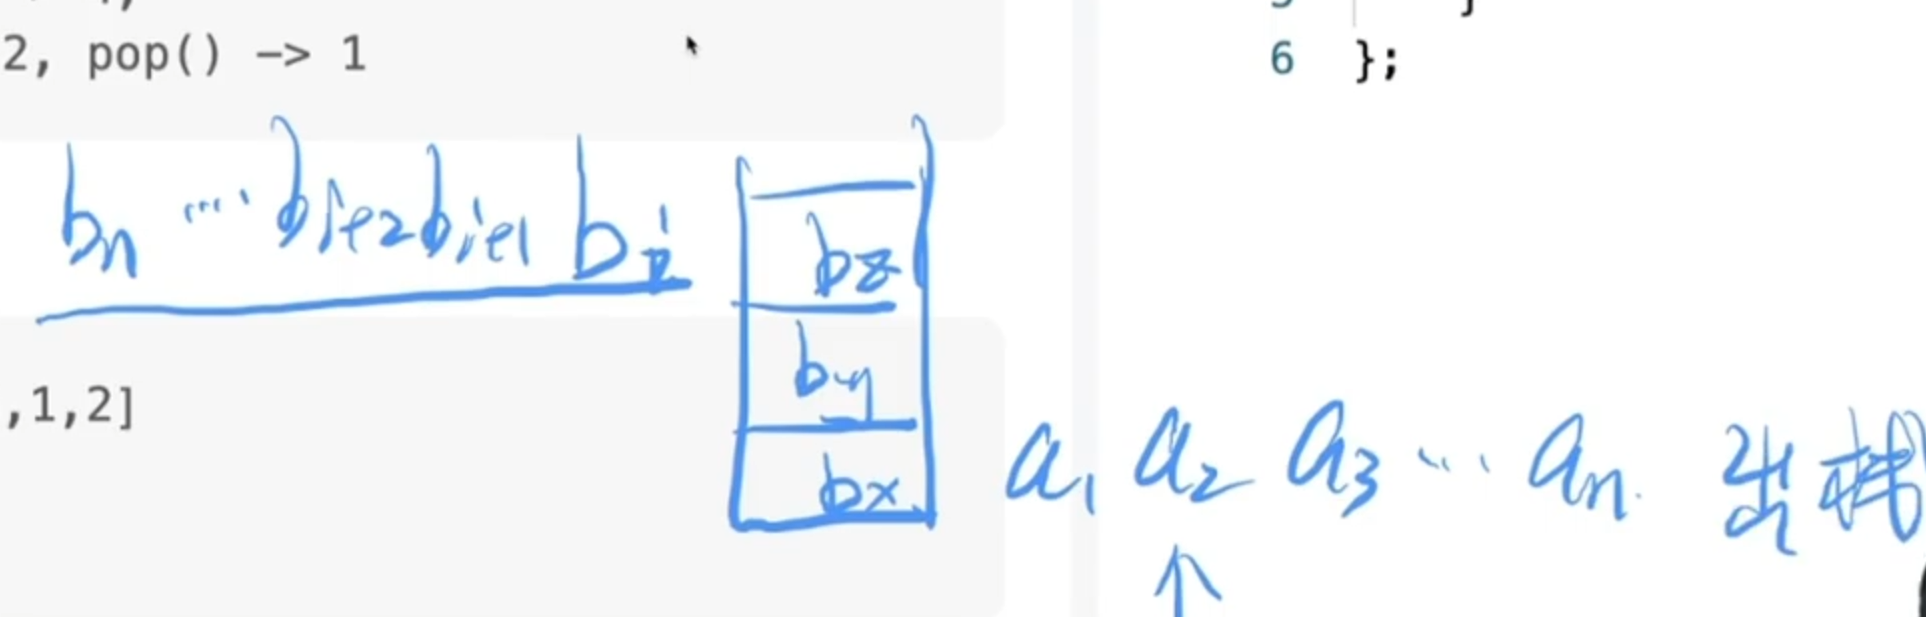 2, pop() -> 1
6 };
bn ... bi+2 bi+1 bi
bz
by
,1,2]
bx
a1 a2 a3 ... an. 出栈